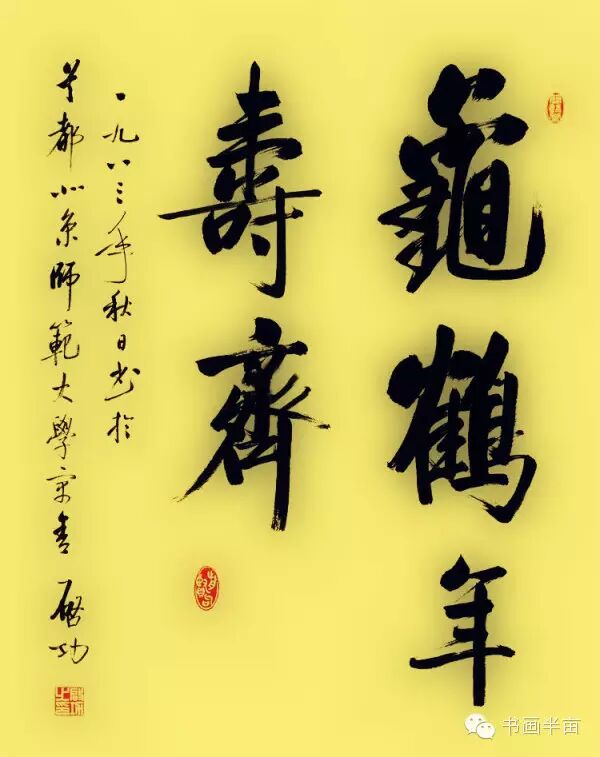 龜鶴年
壽齊
一九八三年秋日书於
首都北京師範大學宗舍
啟功
书画半亩